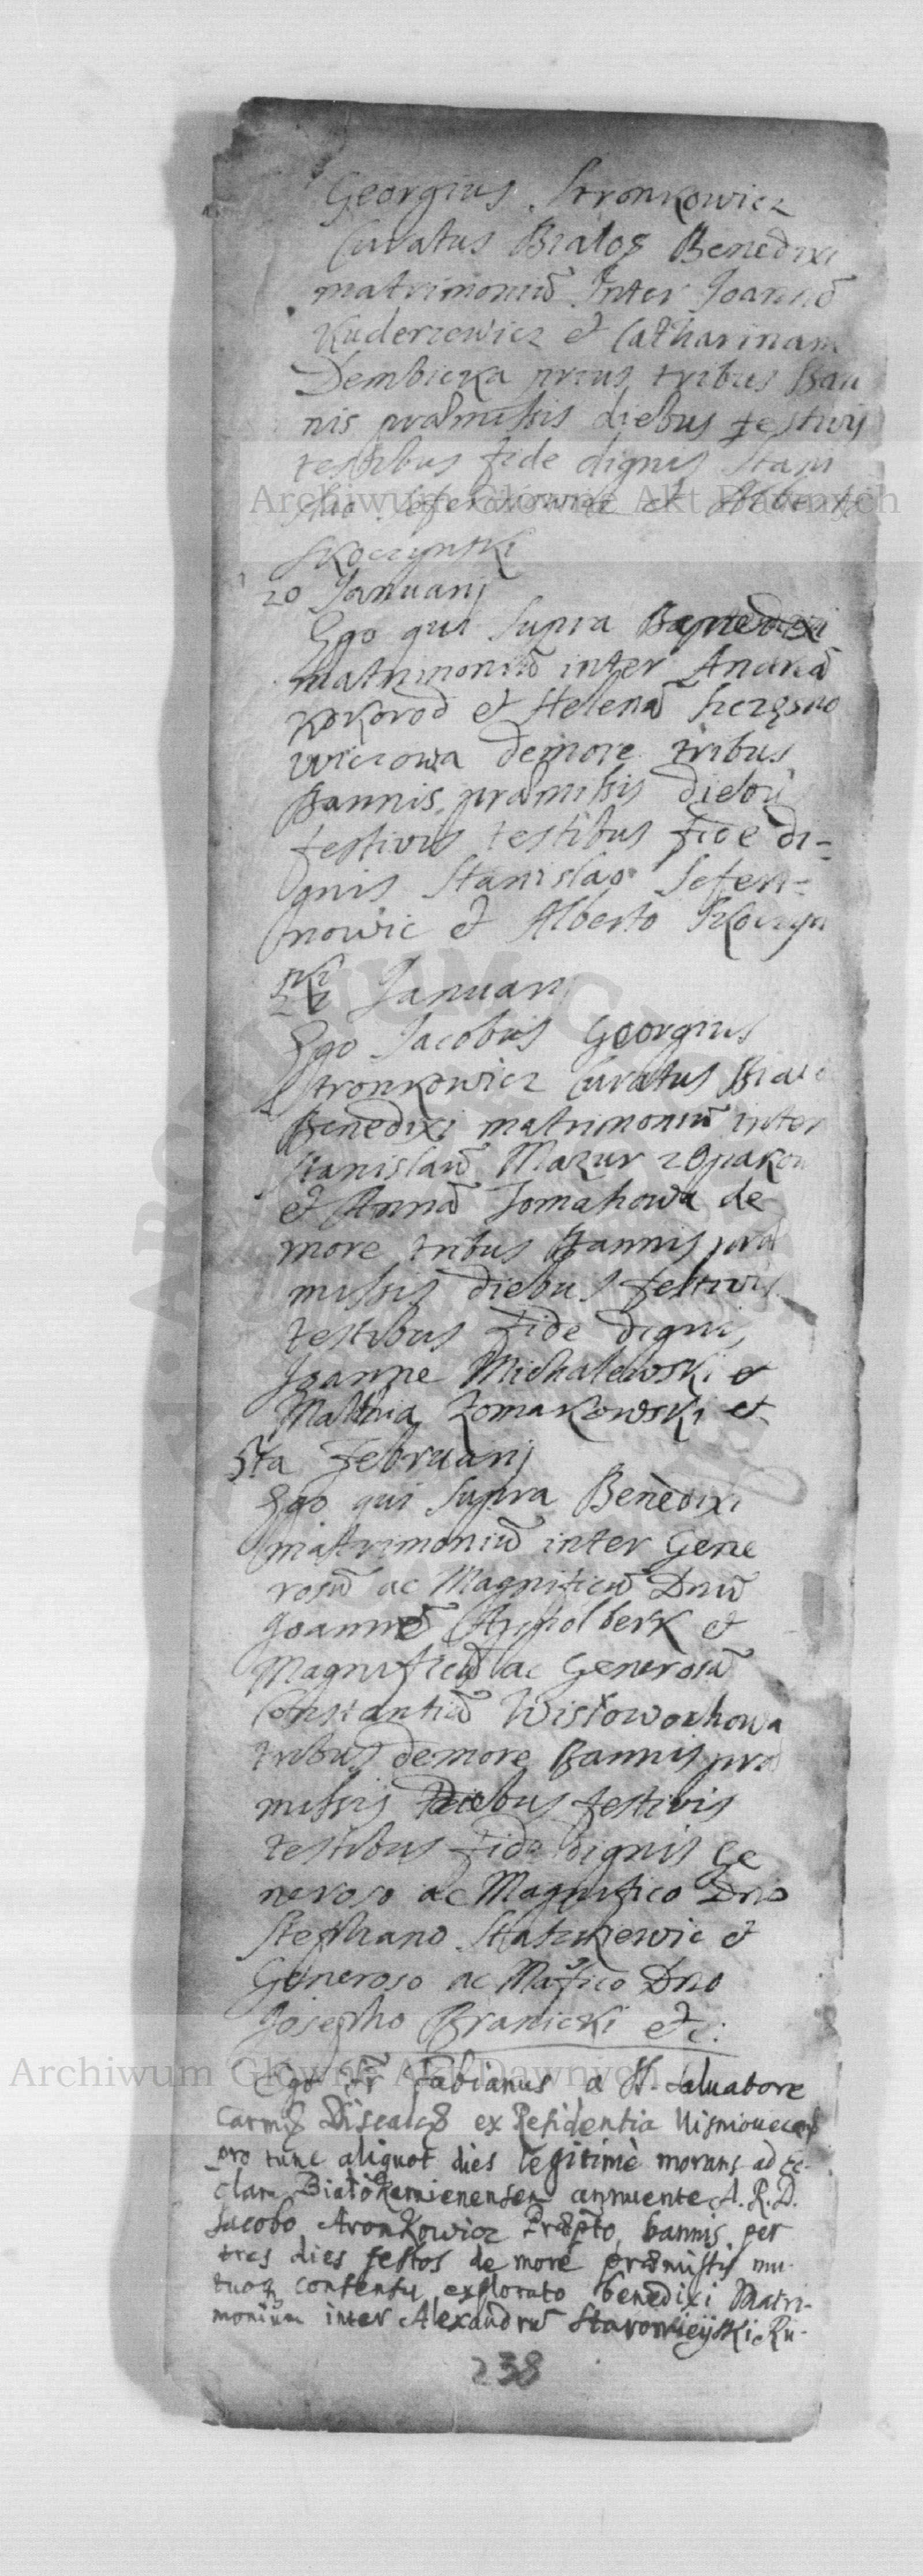 Georgius Stronkowicz
Curatus Białog Benedixi
matrimoniū Inter Joannē
Kuderzewicz et Catharinam
Dembicka prius tribus Ban
nis præmissis diebus festivij
testibus fide dignis Stani
slao et Alberto
Skoczynski
20 Januarij
Ego qui Supra Benedixi
matrimoniū inter Andreā
Kokorod et Helenā
wiczowa de more tribus
Bannis præmissis diebū
festivis testibus fide di=
gnis Stanislao Sefera=
nowic et Alberto Skoczyn
ski
Januarij
Ego Jacobus Georgius
Stronkowicz Curatus Biało
Benedixi matrimoniū inter
Stanislaū Mazur z Opakow
et Annā Tomahowa de
more tribus Bannis præ
missis diebus festivis
testibus fide dignis
Joanne Michalewski et
Mathia Romakowski et
5ta Februarij
Ego qui Supra Benedixi
matrimoniū inter Gene
rosū ac Magnificū Dnū
Joannē et
Magnificā ac Generosā
Constantiā Wisłowoohowa
tribus de more Bannis præ
missis diebus festivis
testibus fide dignis Ge
neroso ac Magnifico Dno
Stephano Statzkiewic et
Generoso ac Mafico Dno
Josepho Branicki etc:
Ego Fr Fabianus a S. Saluatore
Carm Discalc ex Residentia Uisniouecens
pro tunc aliquot dies legitimè morans ad Ec-
clam Białokamienensem annuente A. R. D.
Jacobo Stronkowicz Præpto, bannis per
tres dies festos de more præmissis mu-
tuoq consensu explorato benedixi Matri-
monium inter Alexandrū Starowieijski Ru-
238
Archiwum Główne Akt Dawnych
Archiwum Główne Akt Dawnych